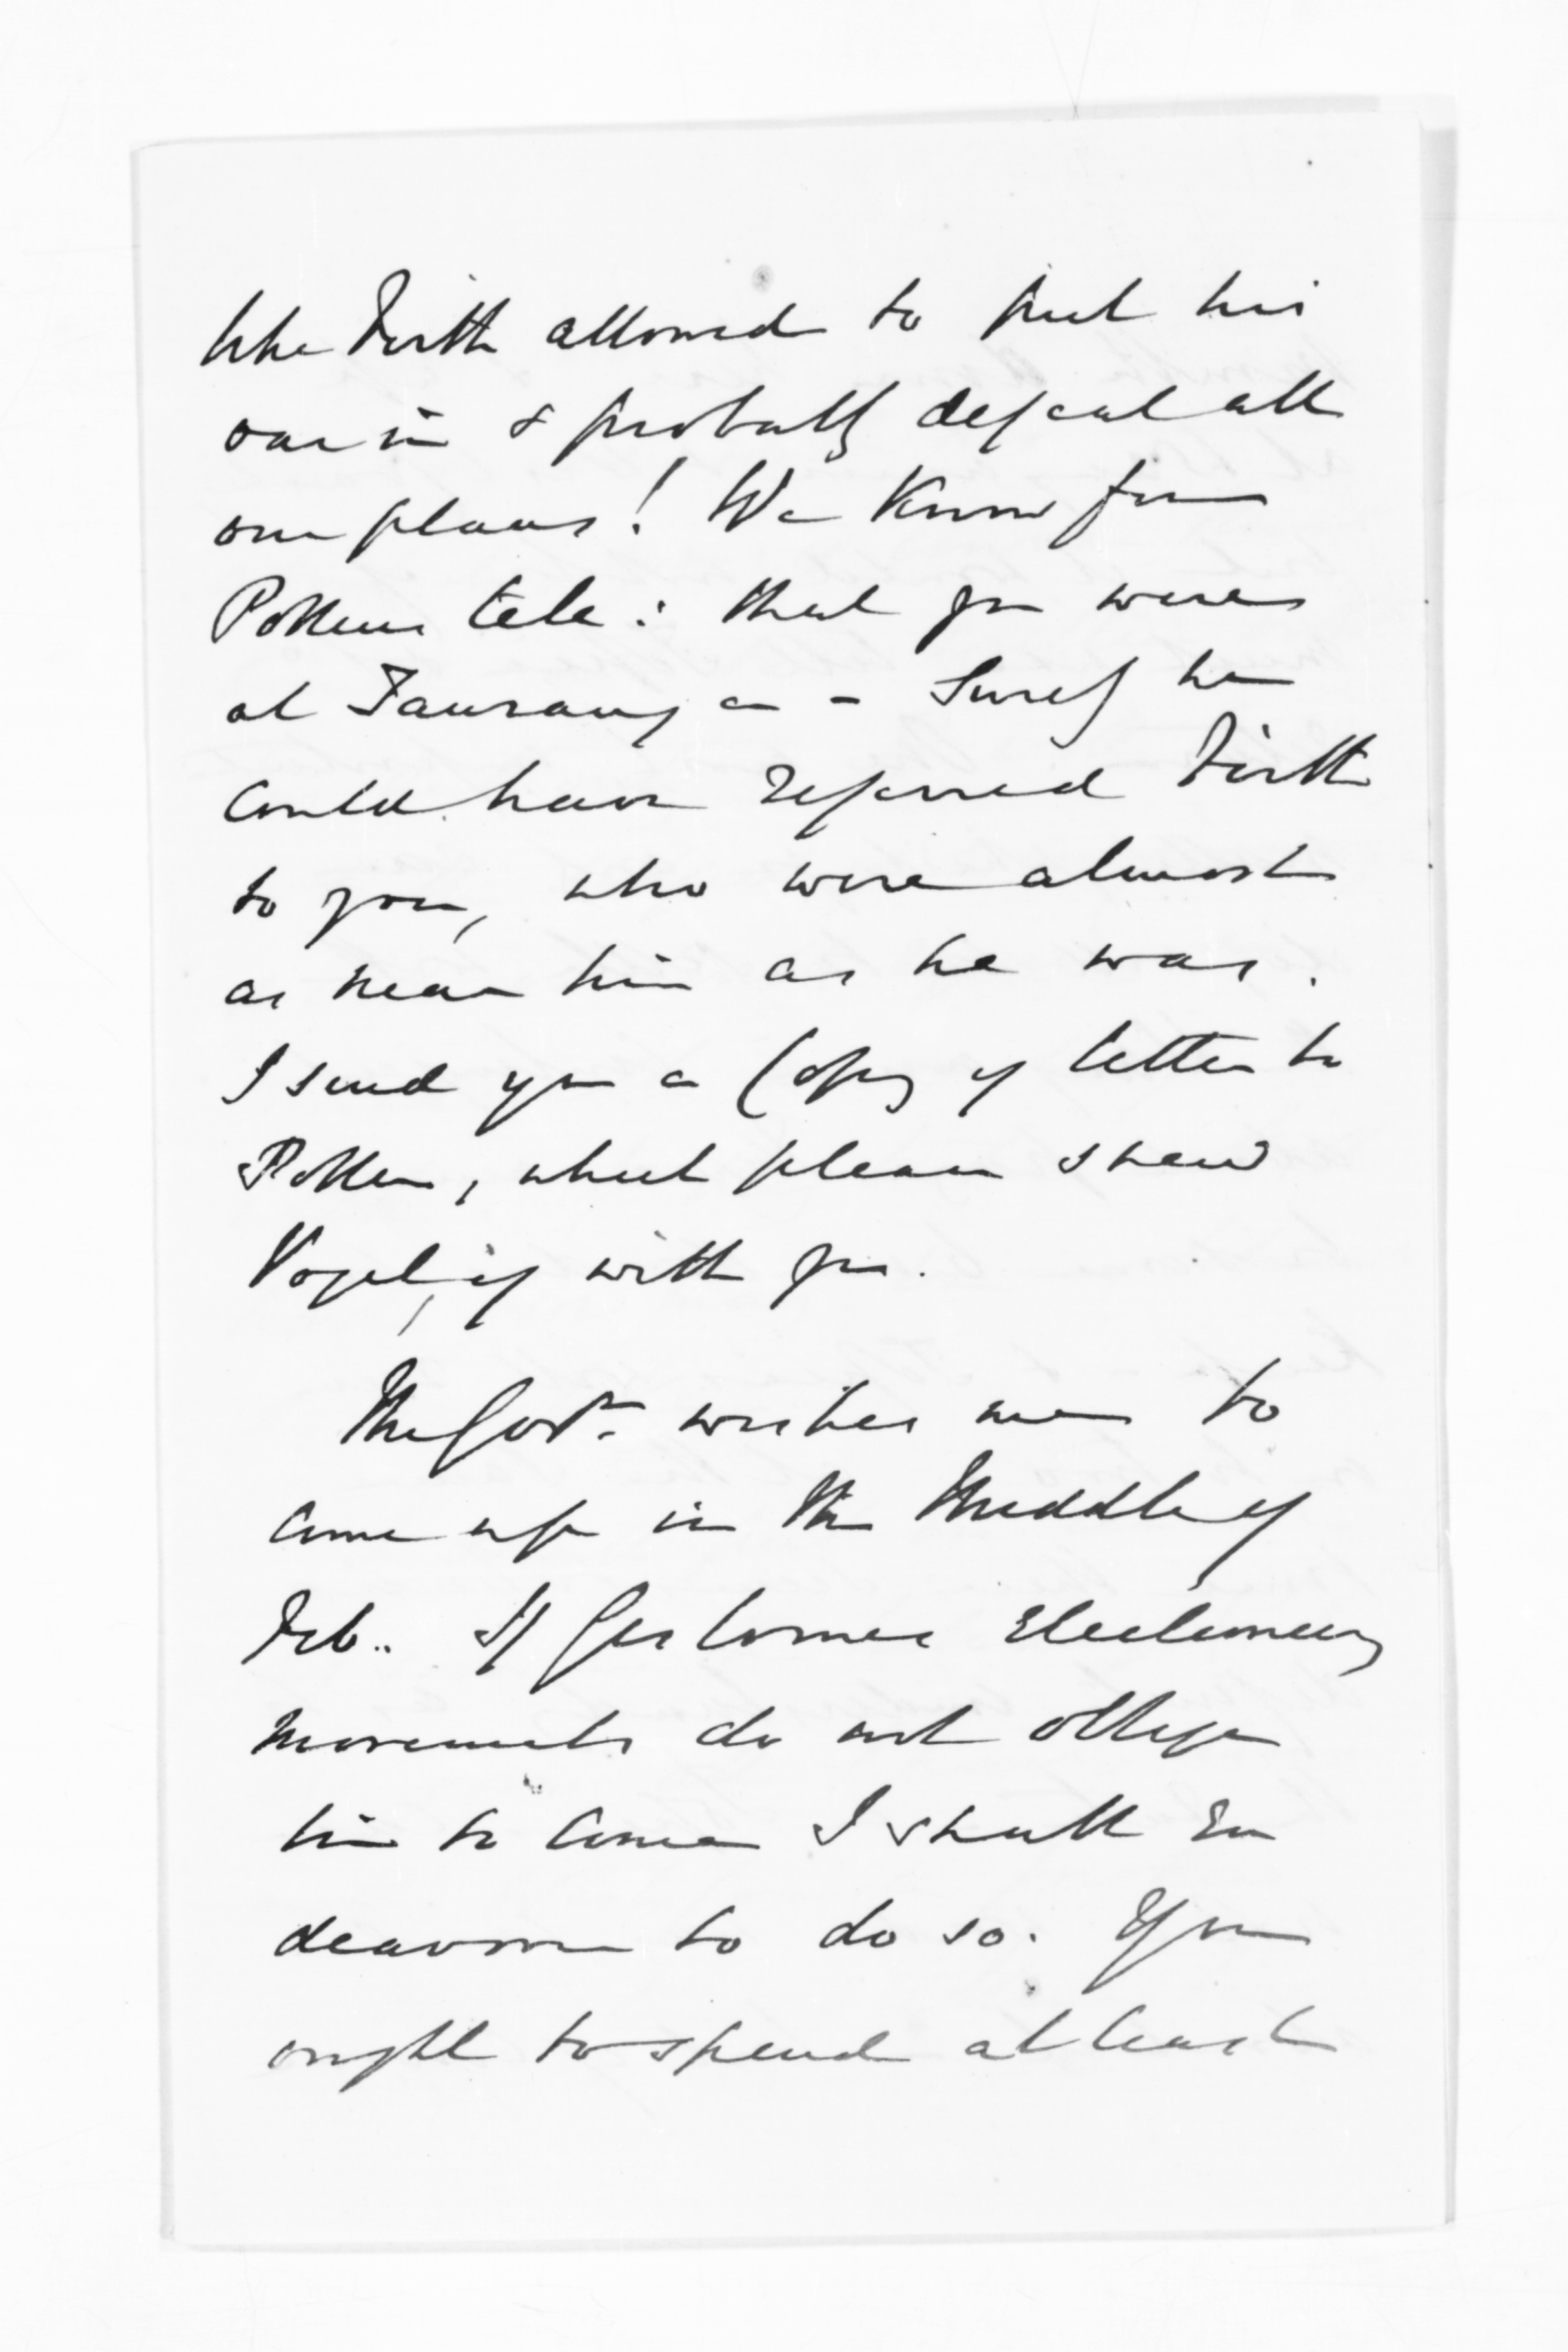 like Firth allowed to put his
oar in & probably defeat all
our plans! We know from
Pollens tele: that you were
at Tauranga - Surely he
could have referred Firth
to you, who were almost
as near him as he was.
I send you a Copy of letter to
Pollen, which please shew
Vogel, if with you.
The Govr. wishes me to
come up in the Middle of
Feb.. If Gisborne's Electioneering
movements do not oblige
him to come I shall en
deavour to do so. You
ought to spend at least